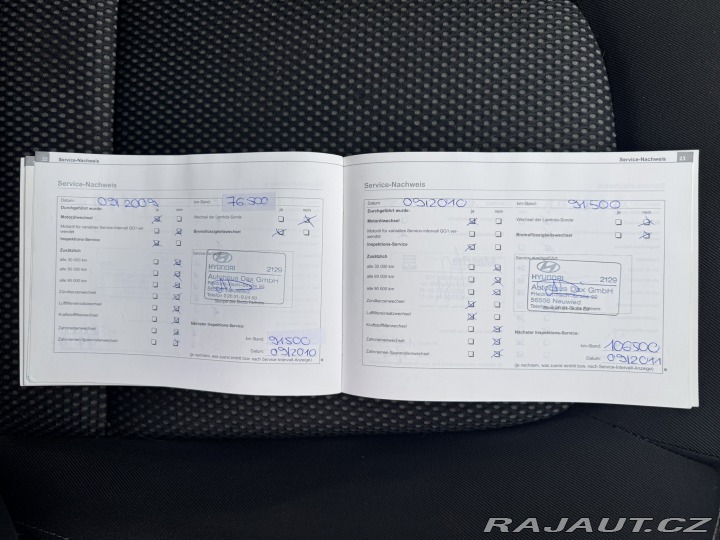 22 Service-Nachweis
Service-Nachweis
Datum: 09/2009 km-Stand: 76500
Durchgeführt wurde: ja nein ja nein
Motorölwechsel Wechsel der Lambda-Sonde
Motoröl für variables Service-Intervall QG1 ver-
wendet Bremsflüssigkeitswechsel
Inspektions-Service
Zusätzlich
alle 30 000 km
alle 60 000 km
alle 90 000 km
HYUNDAI 2129
Autohaus Dax GmbH
Zündkerzenwechsel
Luftfiltereinsatzwechsel
Kraftstofffilterwechsel
Nächster Inspektions-Service:
Zahnriemenwechsel
km-Stand: 91500
Zahnriemen-Spannrollenwechsel
Datum: 09/2010
(je nachdem, was zuerst eintritt bzw. nach Service-Intervall-Anzeige)
Service-Nachweis 23
Service-Nachweis
Datum: 09/2010 km-Stand: 91500
Durchgeführt wurde: ja nein ja nein
Motorölwechsel Wechsel der Lambda-Sonde
Motoröl für variables Service-Intervall QG1 ver-
wendet Bremsflüssigkeitswechsel
Inspektions-Service
Zusätzlich
alle 30 000 km
alle 60 000 km
alle 90 000 km
HYUNDAI 2129
Autohaus Dax GmbH
56566 Neuwied
Zündkerzenwechsel
Luftfiltereinsatzwechsel
Kraftstofffilterwechsel
Nächster Inspektions-Service:
Zahnriemenwechsel
km-Stand: 106500
Zahnriemen-Spannrollenwechsel
Datum: 09/2011
(je nachdem, was zuerst eintritt bzw. nach Service-Intervall-Anzeige)
RAJAUT.CZ